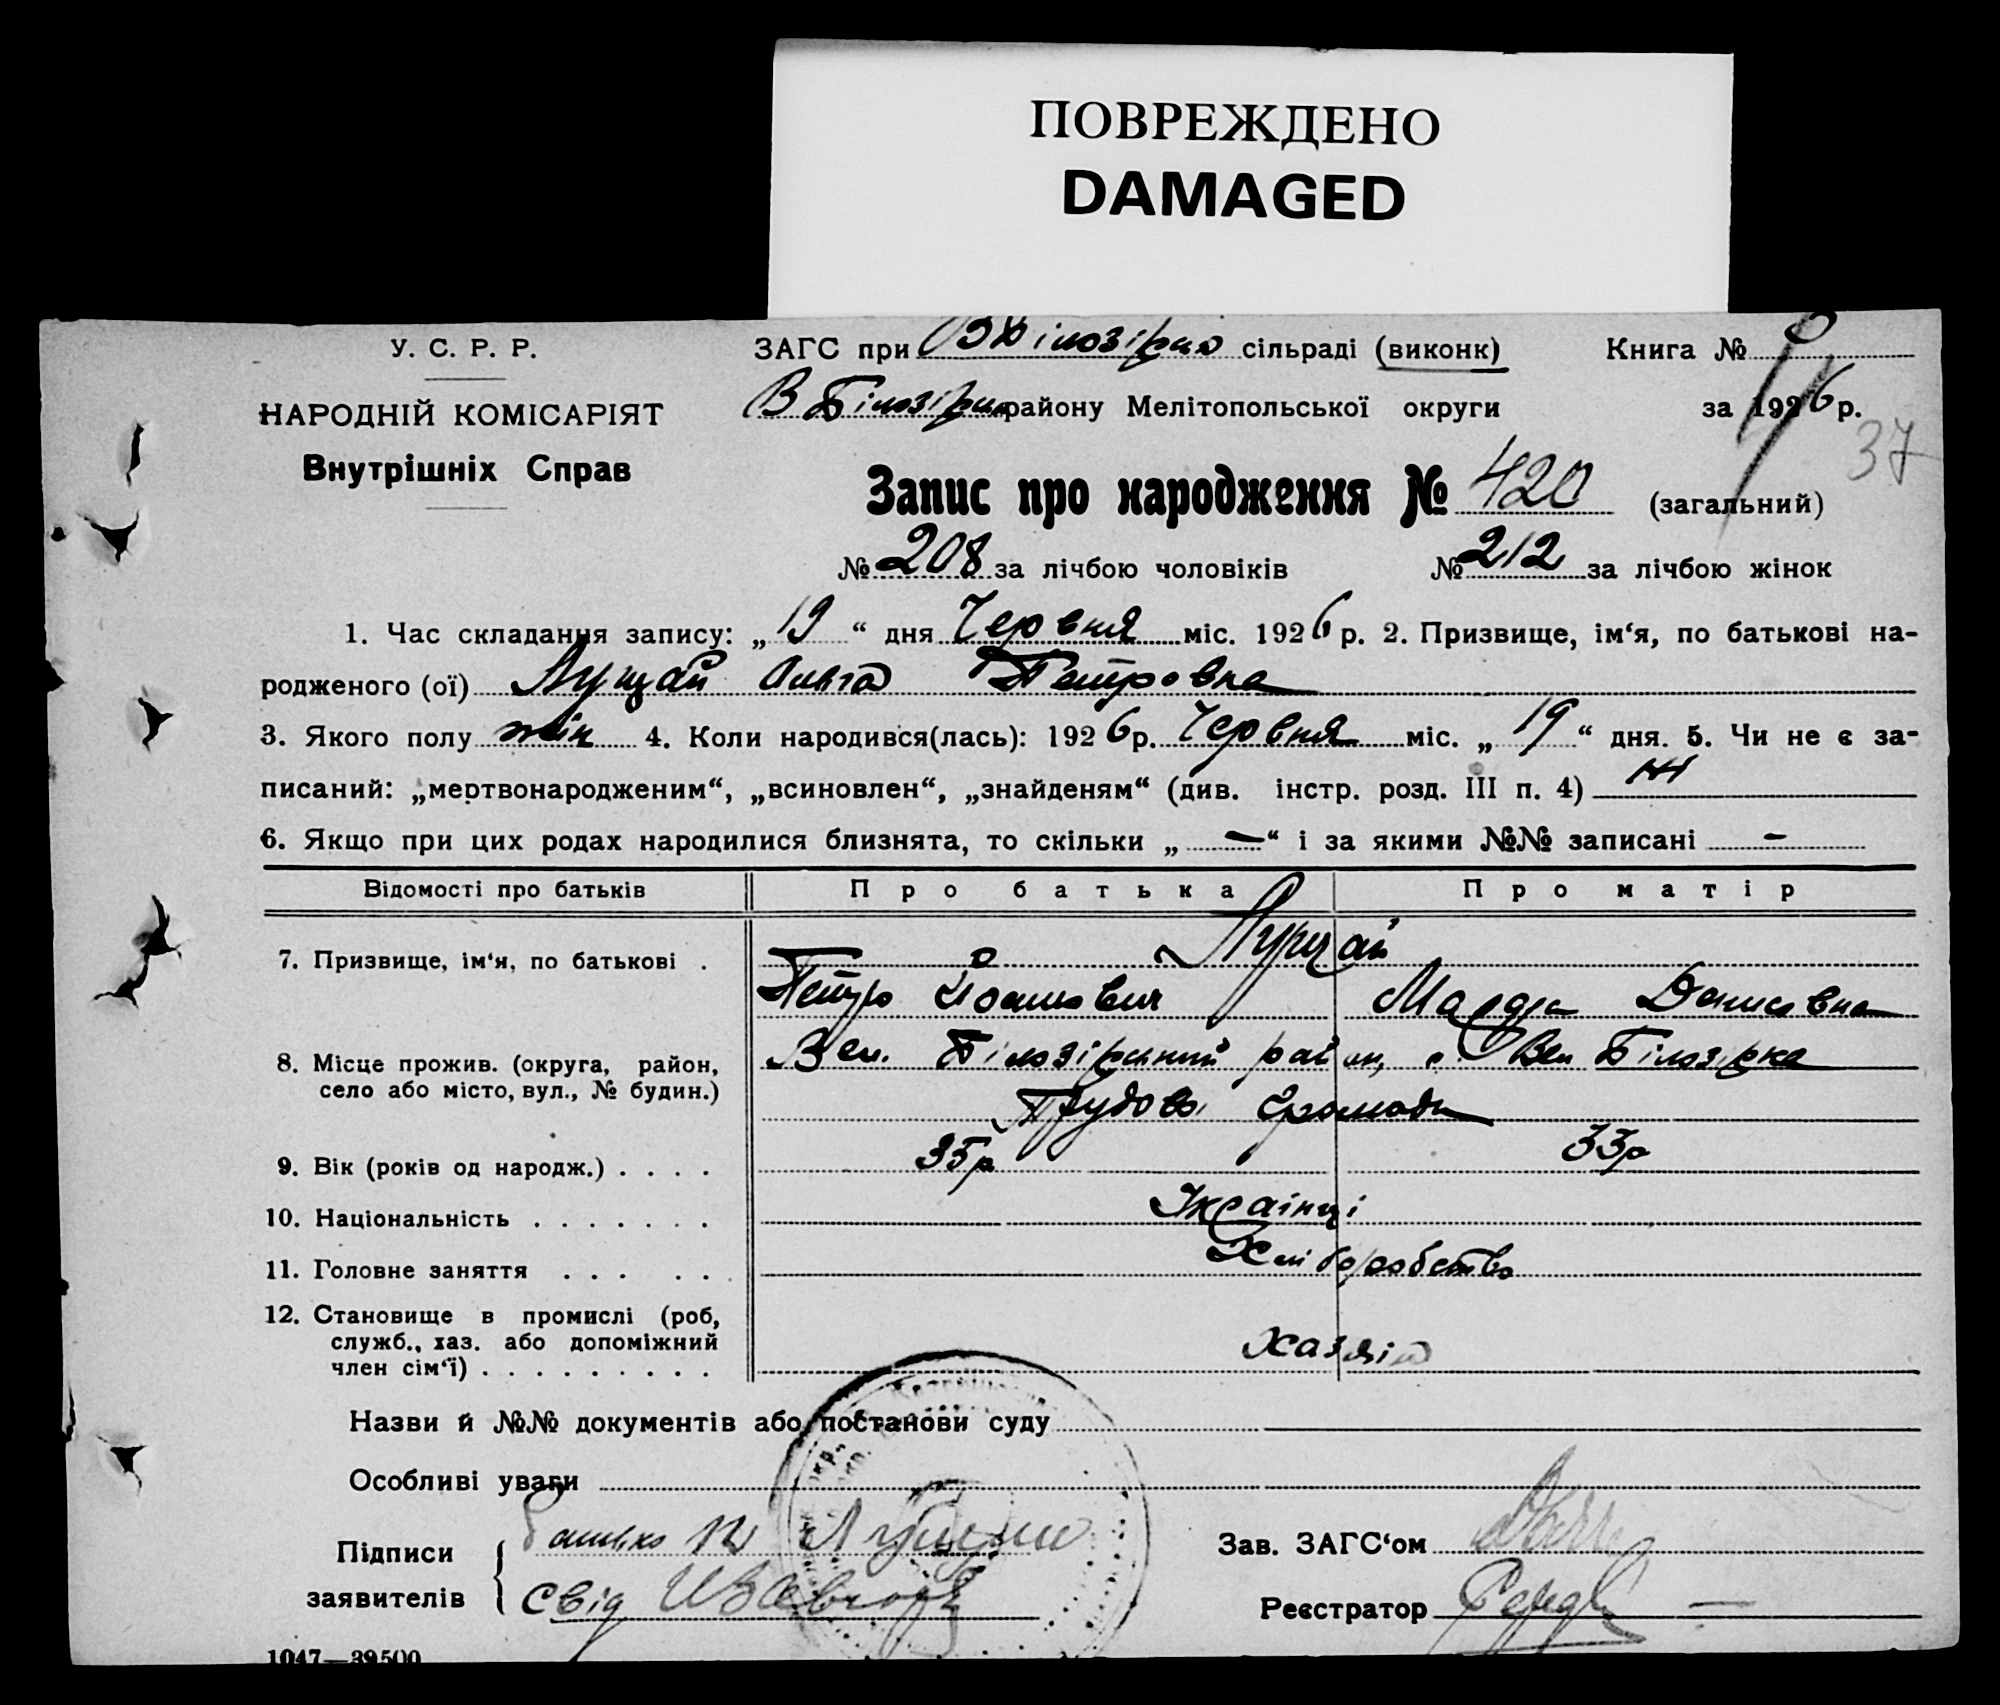 ПОВРЕЖДЕНО
DAMAGED
У. С. Р. Р.
НАРОДНІЙ КОМІСАРІЯТ
Внутрішніх Справ
ЗАГС при В Білозірка сільраді (виконк)
В Білозірка району Мелітопольської округи
Книга №
за 1926 р.
37
Запис про народження № 420 (загальний)
№ 208 за лічбою чоловіків № 212 за лічбою жінок
1. Час складання запису: „19“ дня Червня міс. 1926 р. 2. Призвище, ім‘я, по батькові на-
родженого (ої) Лущай Ольга Петровна
3. Якого полу жін 4. Коли народився(лась): 1926 р. Червня міс. „19“ дня. 5. Чи не є за-
писаний: „мертвонародженим“, „всиновлен“, „знайденям“ (див. інстр. розд. III п. 4)
6. Якщо при цих родах народилися близнята, то скільки „—“ і за якими №№ записані —
Відомості про батьків Про батька Про матір
7. Призвище, ім‘я, по батькові . Лущай
Петро Данисовна
8. Місце прожив. (округа, район,
село або місто, вул., № будин.)
Вел. Білозірський район, с. Вел Білозірка
Трудова громада
9. Вік (років од народж.) . . . . 35р 33р
10. Національність . . . . . . . Українці
11. Головне заняття . . . . . . Хліборобство
12. Становище в промислі (роб,
служб., хаз. або допоміжний
член сім‘ї) . . . . . . . . . Хазяін
Назви й №№ документів або постанови суду
Особливі уваги
Підписи
заявителів
батько
свід
Зав. ЗАГС‘ом
Реєстратор
1047—39500